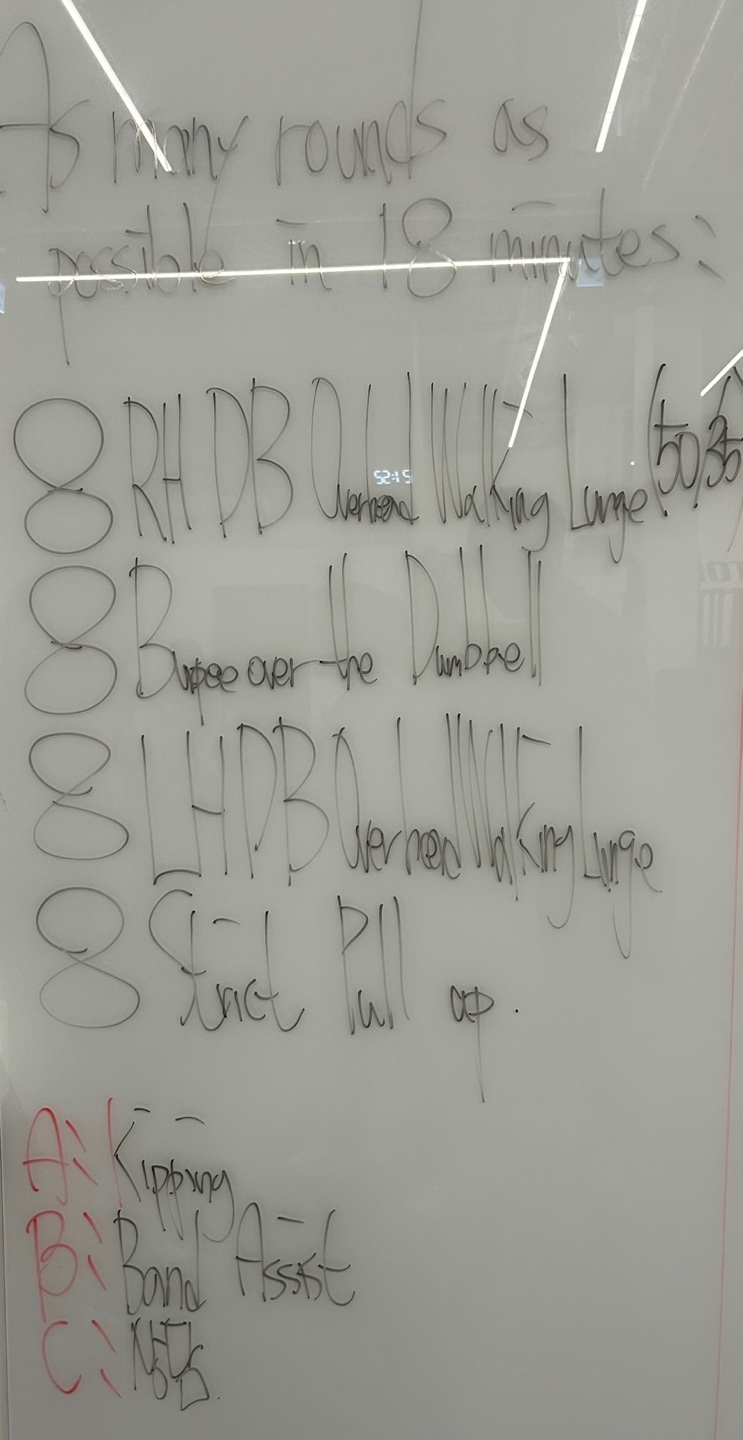 As many rounds as
possible in 18 minutes:
8 RH DB Overhead Walking Lunge (50/35)
8 Burpee over the Dumbbell
8 LH DB Overhead Walking Lunge
8 Strict Pull up.
A: Kipping
B: Band Assist
C:
52:15